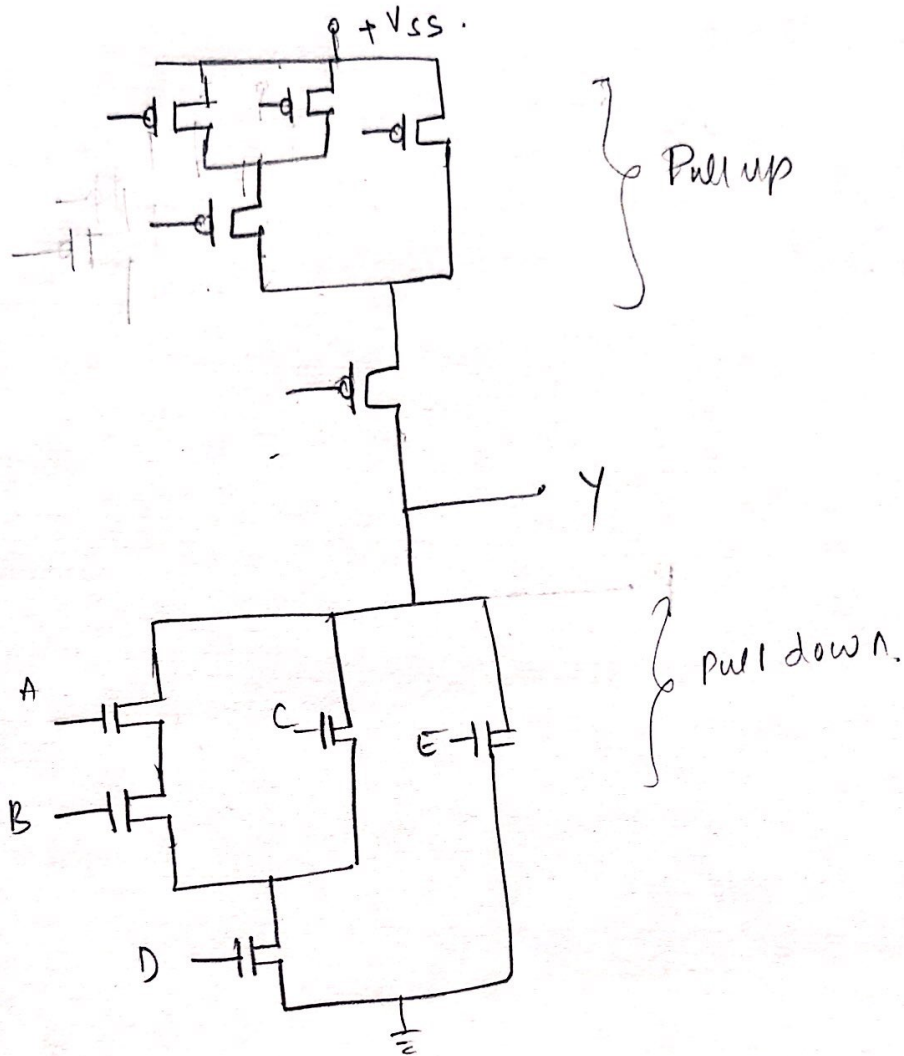 + Vss.
Pull up
Y
Pull down.
A
C
E
B
D